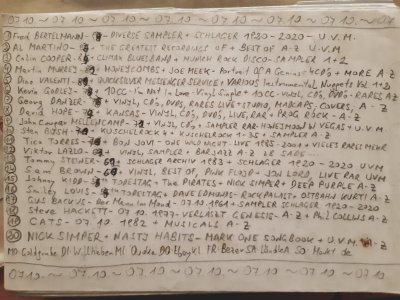 07.10 ~ 07.10 ~ 07.10 ~ 07.10 ~ 07.10 ~ 07.10
Fred BERTELMANN - DIVERSE SAMPLER + SCHLAGER 1920 - 2020 - U.V.M.
AL MARTINO - THE GREATEST RECORDINGS OF + BEST OF A-Z U.V.M.
Colin COOPER - CLIMAX BLUESBAND + MUNICH ROCK DISCO - SAMPLER 1+2
Martin MURRAY - HONEYCOMBS + JOE MEEK - Portrait Of A Genius 4CDs + MORE A-Z
Dino VALENTI - QUICKSILVER MESSENGER SERVICE + VARIOUS Instrumental Nuggets Vol. 1+2
Kevin GODLEY - 10CC - I'm Not In Love - Vinyl Single + 10CC - Vinyl, CDs, DVDs - RARES A-Z
Georg DANZER - VINYL, CDs, DVDs, RARES LIVE + STUDIO, COVERS, A-Z
David HOPE - KANSAS - VINYL, CDs, DVDs, LIVE, RAR + PROG ROCK - A-Z
John Cougar MELLENCAMP - VINYL, CDs, + SAMPLER RAR - HONEYMOON In VEGAS + U.V.M.
Sten BUSH - KUSCHELROCK 4 + KUSCHELROCK 1-35 + SAMPLER A-Z
Tico TORRES - BON JOVI - ONE WILD NIGHT: LIVE 1985-2001 + VIELES RARES MEHR
Viktor LAZLO - VINYL, SAMPLER + BAR JAZZ A-Z LE SADE
Tommy STEINER - SCHLAGER ARCHIV 1983 + SCHLAGER 1920-2020 UVM
Sam BROWN - VINYL, BEST OF, PINK FLOYD + JON LORD, LIVE RAR UVM
Johnny KIDD - TODESTAG + THE PIRATES + NICK SIMPER + DEEP PURPLE A-Z
Smiley LOUIS - TODESTAG + DAVE EDMUNDS - ROCKPALAST - OSTBAHN KURTI A-Z
GUS BACKUS - Der Mann Im Mond - 07.10.1961 + SAMPLER SCHLAGER 1920-2020
Steve HACKETT - 07.10.1977 - VERLÄSST GENESIS - A-Z + Phil COLLINS A-Z
CATS - 07.10.1982 + MUSICALS A-Z
NICK SIMPER + NASTY HABITS - MARK ONE SONGBOOK + U.V.M. A-Z
07.10 ~ 07.10 ~ 07.10 ~ 07.10 ~ 07.10 ~ 07.10